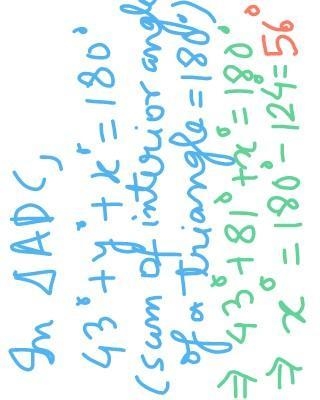 In △ADC,
43° + y° + x° = 180°
(sum of interior angle
of a triangle = 180°)
⇒ 43° + 81° + x° = 180°
⇒ x° = 180° - 124° = 56°